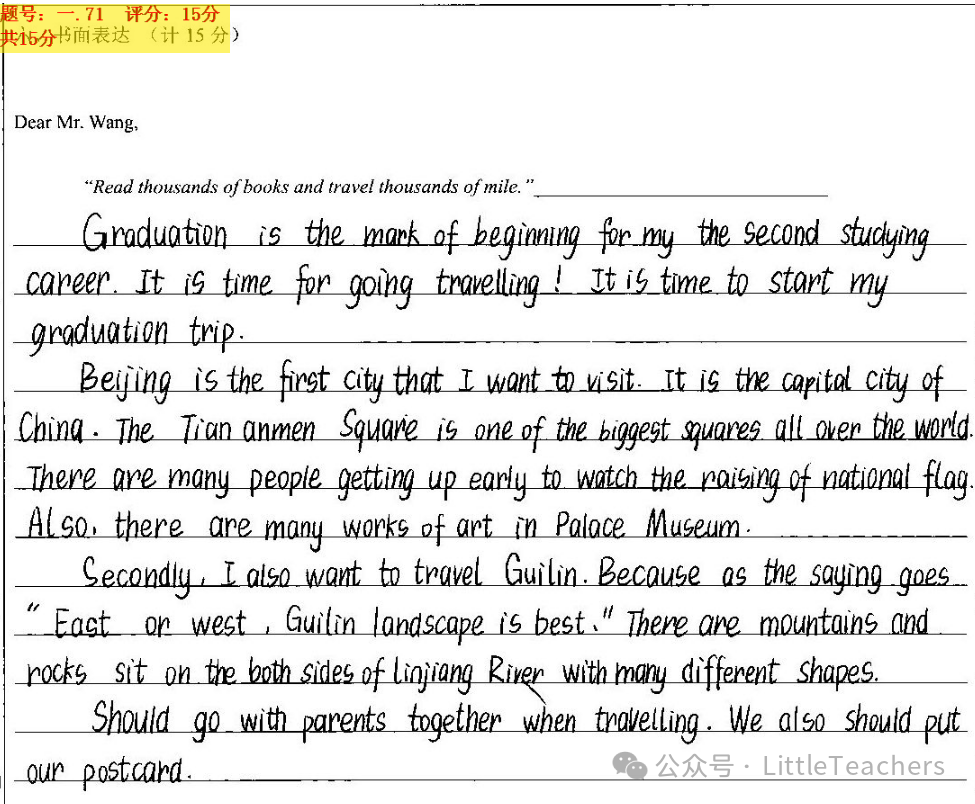 题号：一.71 评分：15分
共15分 书面表达 （计 15 分）
Dear Mr. Wang,
“Read thousands of books and travel thousands of mile.”
Graduation is the mark of beginning for my the second studying
career. It is time for going travelling! It is time to start my
graduation trip.
Beijing is the first city that I want to visit. It is the capital city of
China. The Tian anmen Square is one of the biggest squares all over the world.
There are many people getting up early to watch the raising of national flag.
Also, there are many works of art in Palace Museum.
Secondly, I also want to travel Guilin. Because as the saying goes
“East or west, Guilin landscape is best.” There are mountains and
rocks sit on the both sides of Linjiang River with many different shapes.
Should go with parents together when travelling. We also should put
our postcard.
公众号 · LittleTeachers